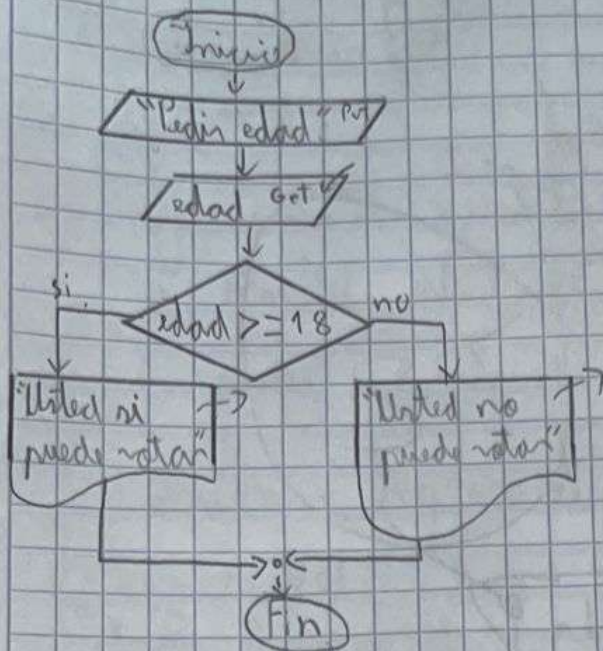 Inicio
"Pedir edad" Put
edad Get
si
edad >= 18
no
"Usted si
puede votar"
"Usted no
puede votar"
Fin